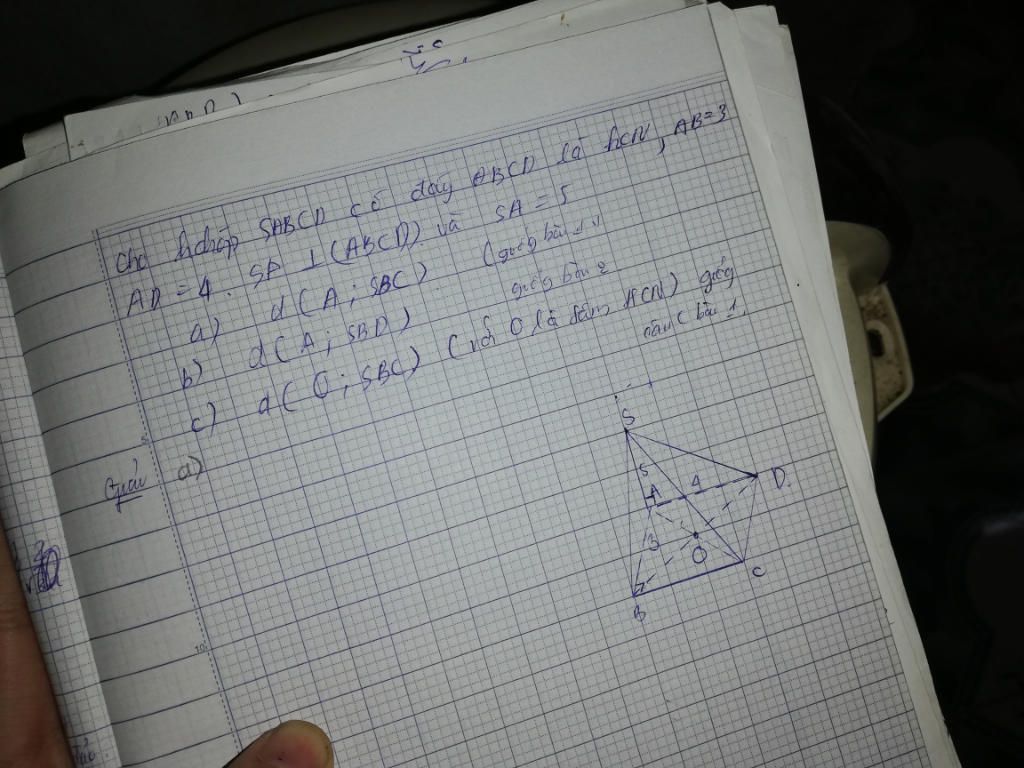 Cho hchóp SABCD có đáy ABCD là hCN, AB = 3
AD = 4. SA ⊥ (ABCD) và SA = 5
a) d(A; SBC) (giống bài 1)
b) d(A; SBD) giống bài 2
c) d(O; SBC) (với O là tâm HCN) giống
câu bài 1.
Giải
a)
S
5
A
4
D.
3
O
B
C
5
10